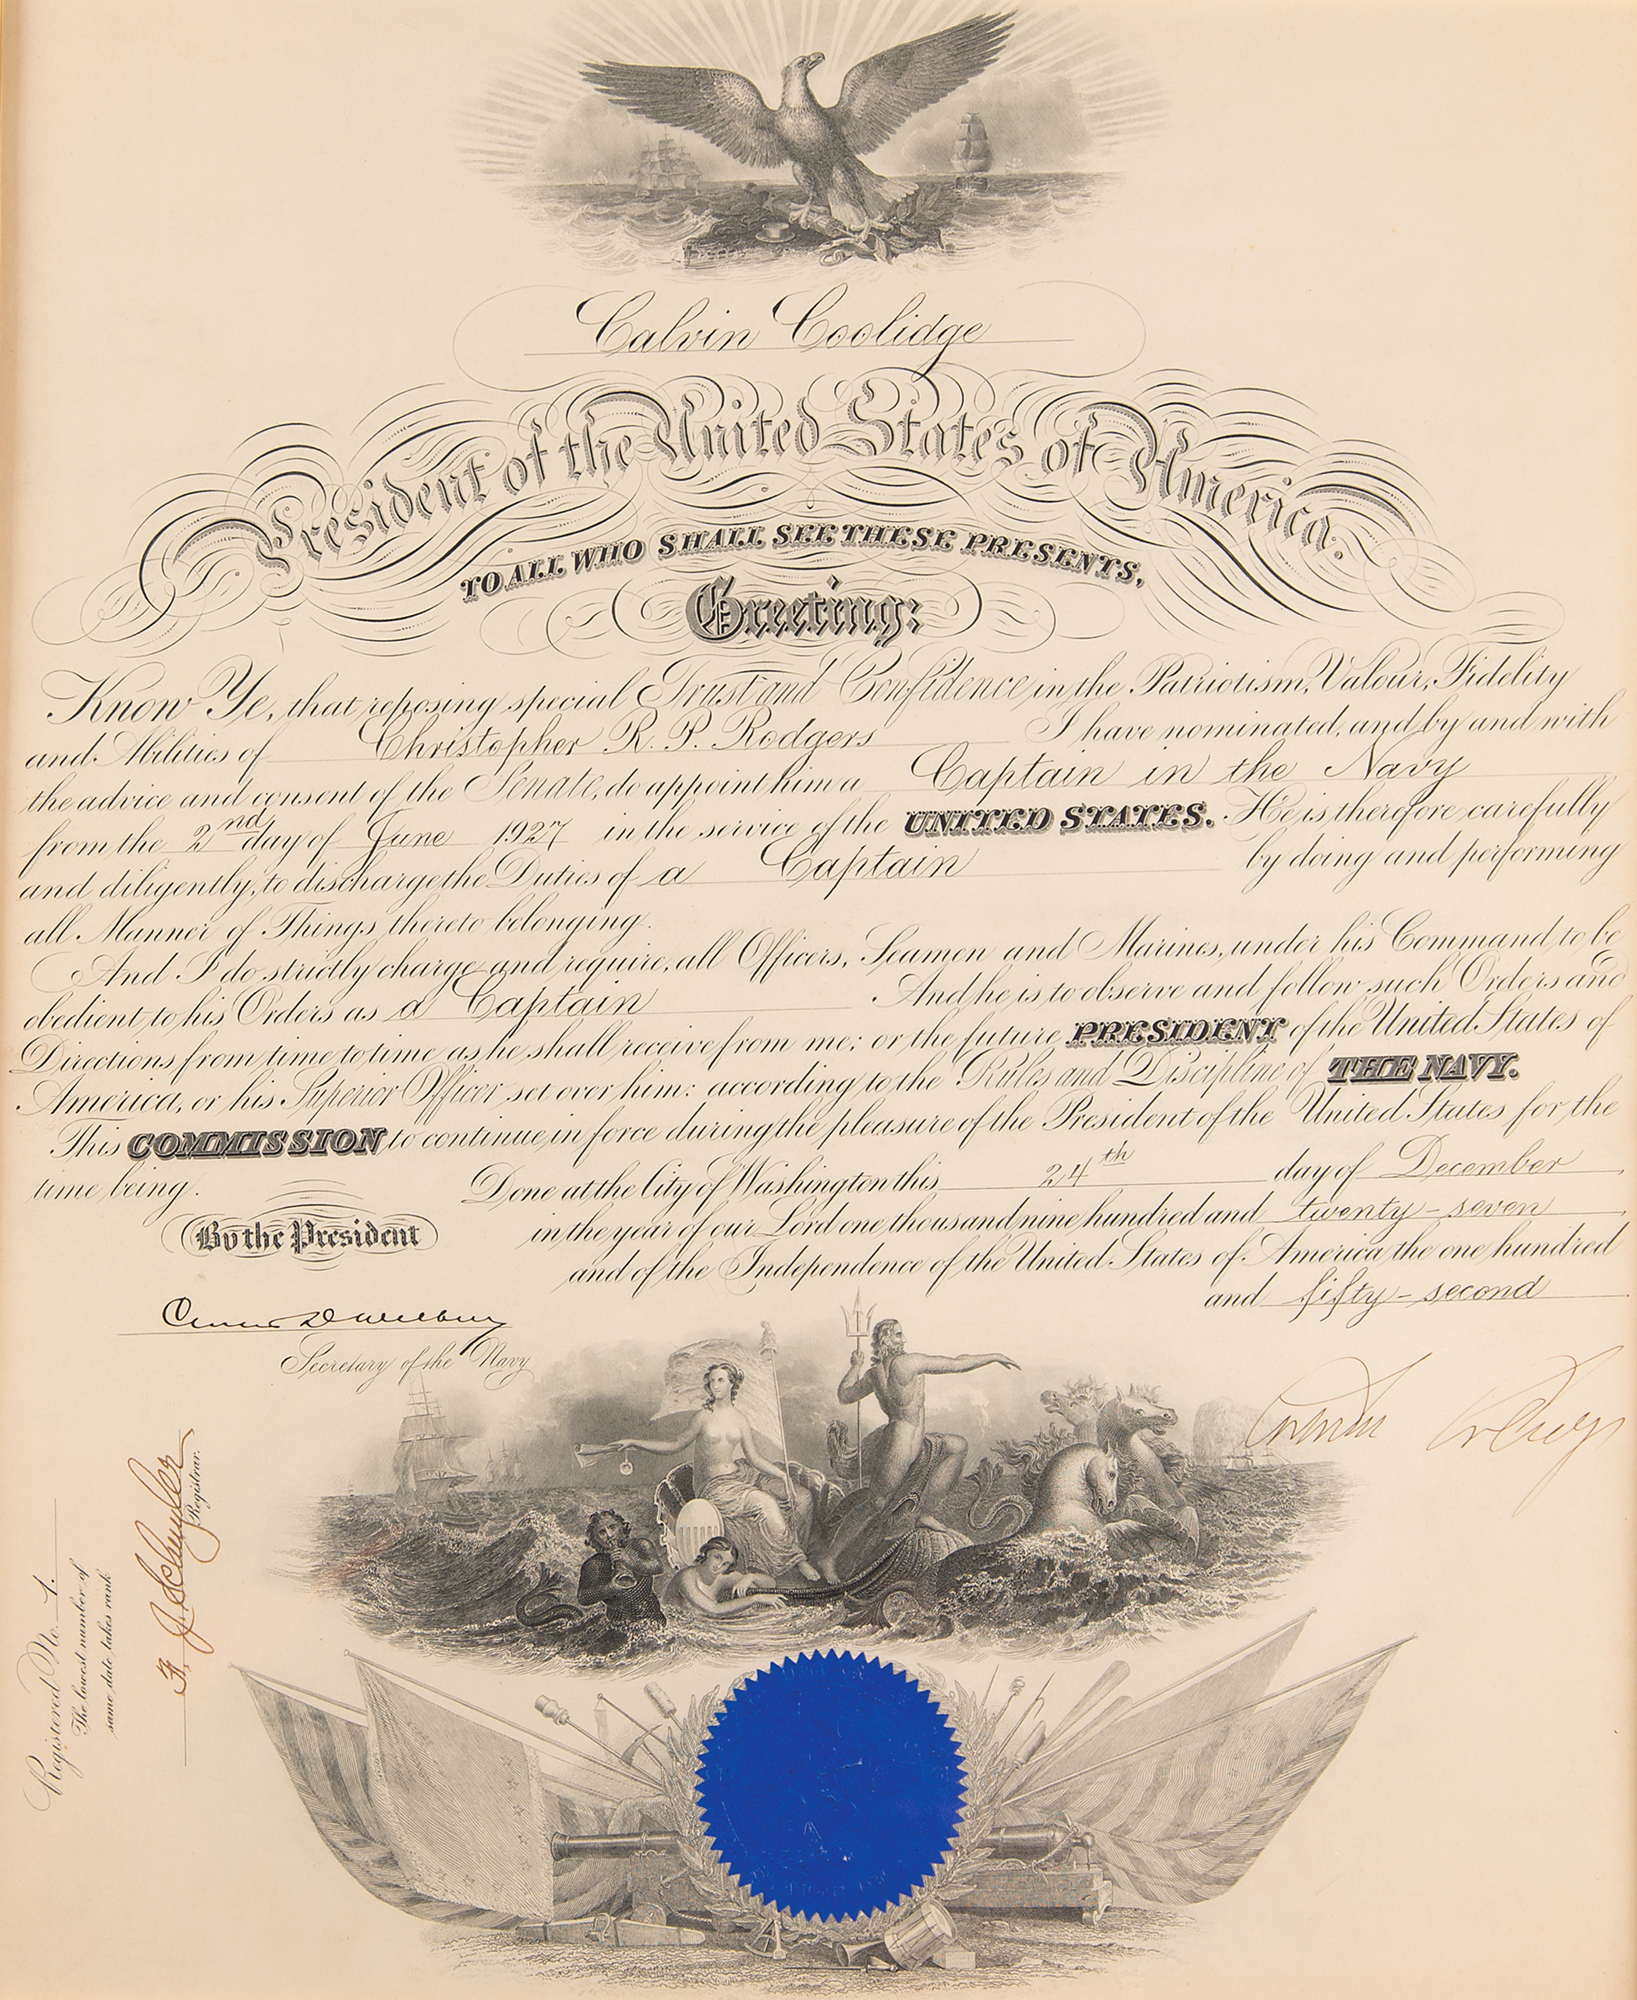 Calvin Coolidge
President of the United States of America.
TO ALL WHO SHALL SEE THESE PRESENTS,
Greeting:
Know Ye, that reposing special Trust and Confidence in the Patriotism, Valour, Fidelity
and Abilities of Christopher R. P. Rodgers I have nominated, and by and with
the advice and consent of the Senate, do appoint him a Captain in the Navy
from the 2nd day of June 1927 in the service of the UNITED STATES. He is therefore carefully
and diligently, to discharge the Duties of a Captain by doing and performing
all Manner of Things thereto belonging.
And I do strictly charge and require, all Officers, Seamen and Marines, under his Command to be
obedient to his Orders as a Captain And he is to observe and follow such Orders and
Directions from time to time as he shall receive from me; or the future PRESIDENT of the United States of
America, or his Superior Officer set over him: according to the Rules and Discipline of THE NAVY.
This COMMISSION to continue in force during the pleasure of the President of the United States for the
time being.
Done at the City of Washington this 24th day of December
in the year of our Lord one thousand nine hundred and twenty-seven
and of the Independence of the United States of America the one hundred
and fifty-second
By the President
Curtis D Wilbur
Secretary of the Navy
Calvin Coolidge
Registered No. 1.
The lowest number of
same date takes rank
Registrar.